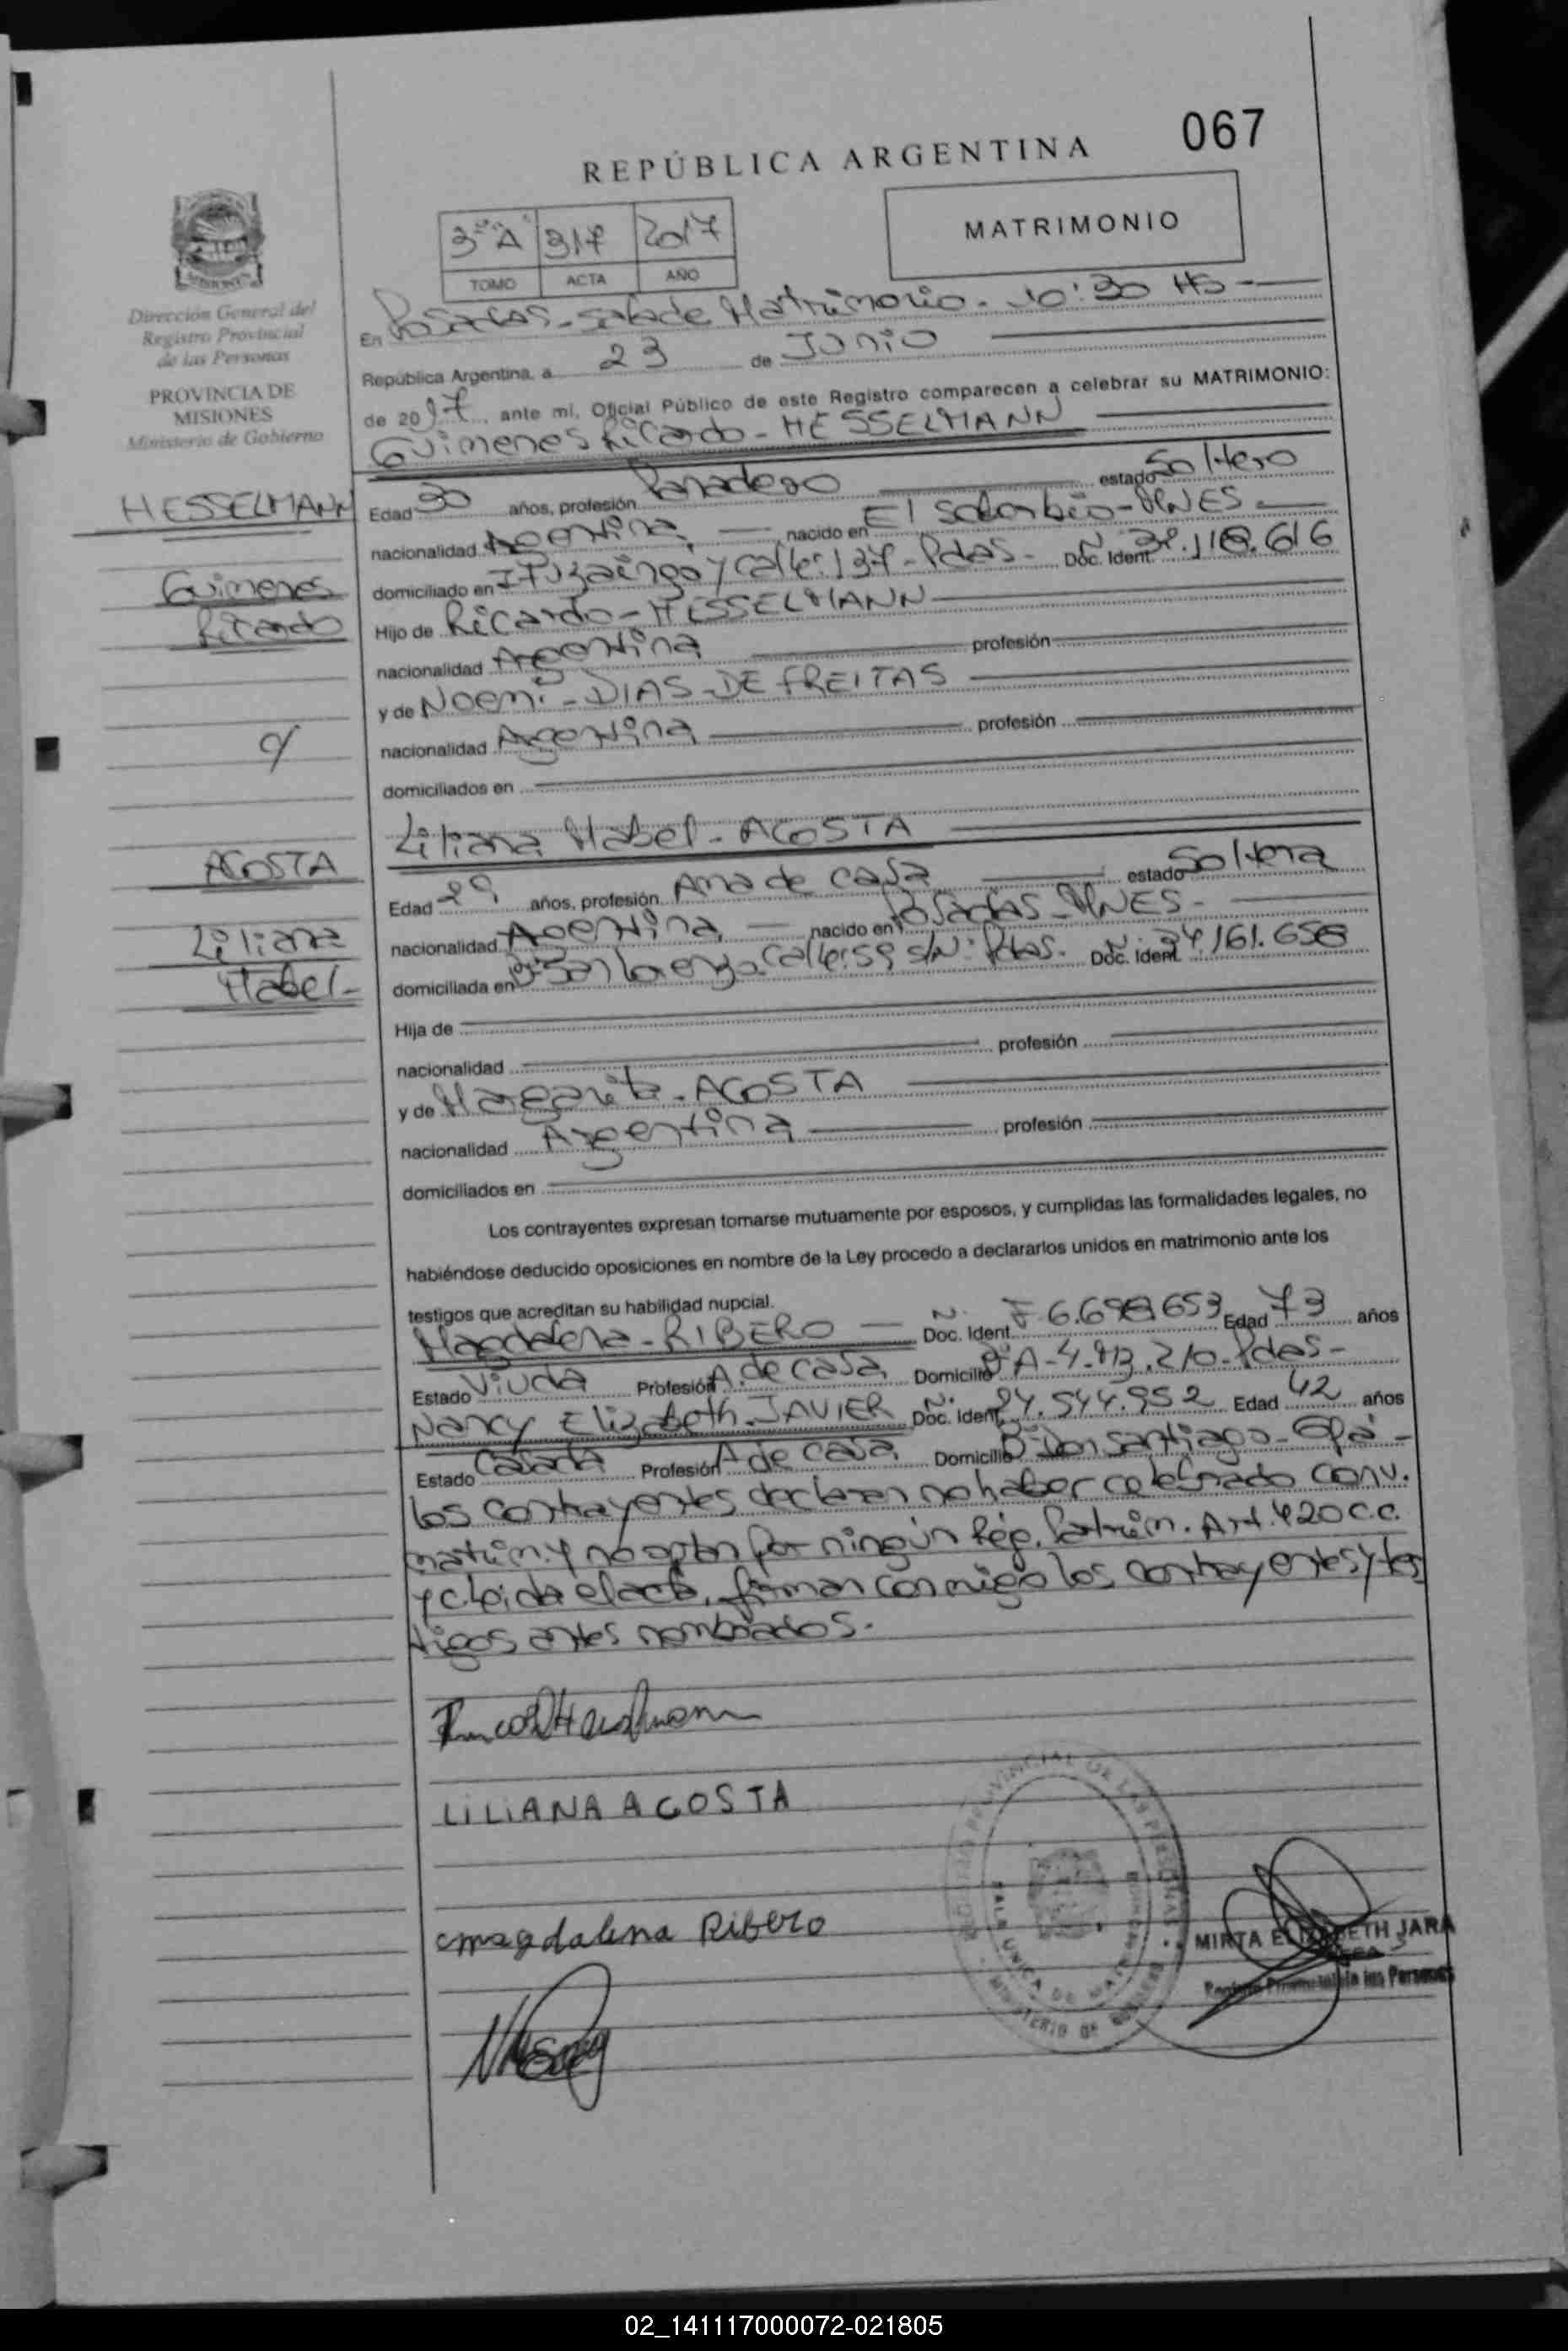 067
REPÚBLICA ARGENTINA
MATRIMONIO
3º A 317 2017
TOMO ACTA AÑO
Dirección General del
Registro Provincial
de las Personas
PROVINCIA DE
MISIONES
Ministerio de Gobierno
HESSELMANN
Guimenes
Ricardo
c/
ACOSTA
Liliana
Mabel-
En Posadas - Sala de Matrimonio - 10:30 Hs -
República Argentina, a 23 de Junio
de 2017 ante mí, Oficial Público de este Registro comparecen a celebrar su MATRIMONIO:
Guimenes Ricardo - HESSELMANN
Edad 30 años, profesión Panadero estado Soltero
nacionalidad Argentina nacido en El Soberbio - MNES
domiciliado en Ituzaingo y calle: 137 - Pdas - Doc. Ident.
Hijo de Ricardo - HESSELMANN
nacionalidad Argentina profesión
y de Noemi - DIAS - DE FREITAS
nacionalidad Argentina profesión
domiciliados en
Liliana Mabel - ACOSTA
Edad 29 años, profesión Ama de casa estado Soltera
nacionalidad Argentina nacido en Posadas - MNES -
domiciliada en Bº San Lorenzo. Calle: 59 s/Nº: Pdas. Doc. Ident. Nº 34.161.658
Hija de
nacionalidad profesión
y de Margarita - ACOSTA
nacionalidad Argentina profesión
domiciliados en
Los contrayentes expresan tomarse mutuamente por esposos, y cumplidas las formalidades legales, no
habiéndose deducido oposiciones en nombre de la Ley procedo a declararlos unidos en matrimonio ante los
testigos que acreditan su habilidad nupcial.
Magdalena - RIBERO Doc. Ident. Nº F 6.698.653 Edad 73 años
Estado Viuda Profesión A. de casa Domicilio Bº A-4. Pdas -
Nancy Elizabeth. JAVIER Doc. Ident. Nº 24.544.952 Edad 42 años
Estado Casada Profesión A de casa Domicilio Bº Don Santiago - Gpá -
Los contrayentes declaran no haber celebrado Conv.
matrim. y no optan por ningún Rég. Patrim. Art. 420 C.C.
y C. Leida el acta, firman conmigo los contrayentes y tes
tigos antes nombrados.
LILIANA ACOSTA
Magdalena Ribero
MIRTA ELIZABETH JARA
Registro Provincial de las Personas
02_141117000072-021805